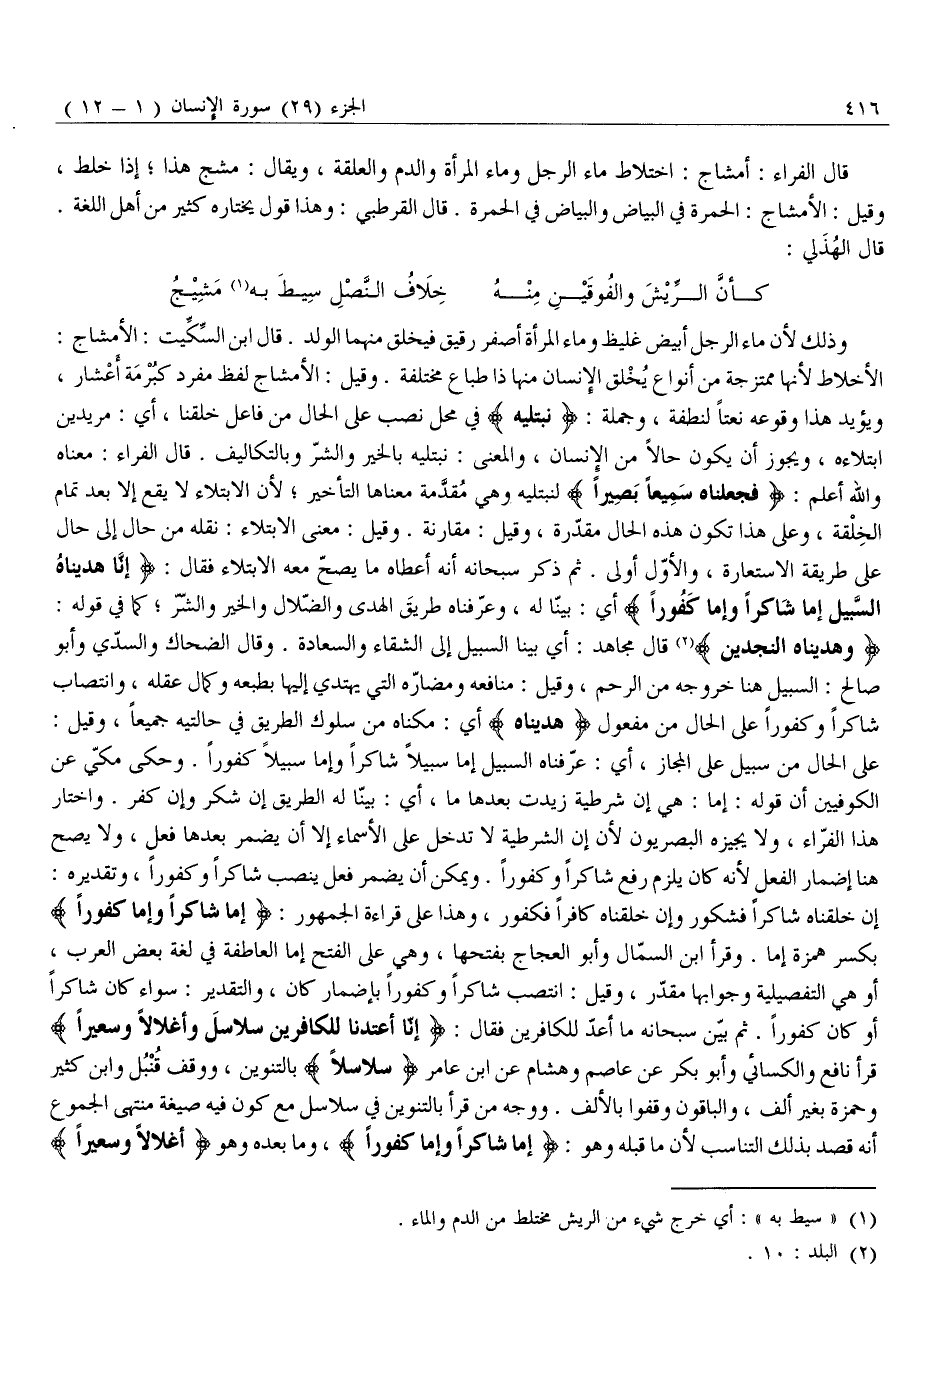 ٤١٦ الجزء (٢٩) سورة الإنسان ( ١ – ١٢ )
قال الفراء : أمشاج : اختلاط ماء الرجل وماء المرأة والدم والعلقة ، ويقال : مشج هذا ؛ إذا خلط ،
وقيل : الأمشاج : الحمرة في البياض والبياض في الحمرة . قال القرطبي : وهذا قول يختاره كثير من أهل اللغة .
قال الهُذَلي :
كـأنَّ الـرِّيْشَ والفُوقَيْـنِ مِنْـهُ خِلَافُ النَّصْلِ سِيطَ بـه(١) مَشِيْجُ
وذلك لأن ماء الرجل أبيض غليظ وماء المرأة أصفر رقيق فيخلق منهما الولد . قال ابن السِّكِّيت : الأمشاج :
الأخلاط لأنها ممتزجة من أنواع يُخْلق الإنسان منها ذا طباع مختلفة . وقيل : الأمشاج لفظ مفرد كبُرْمَة أَعْشار ،
ويؤيد هذا وقوعه نعتاً لنطفة ، وجملة : ﴿ نبتليه ﴾ في محل نصب على الحال من فاعل خلقنا ، أي : مريدين
ابتلاءه ، ويجوز أن يكون حالاً من الإنسان ، والمعنى : نبتليه بالخير والشرّ وبالتكاليف . قال الفراء : معناه
والله أعلم : ﴿ فجعلناه سَمِيعاً بَصِيراً ﴾ لنبتليه وهي مُقدَّمة معناها التأخير ؛ لأن الابتلاء لا يقع إلا بعد تمام
الخِلْقة ، وعلى هذا تكون هذه الحال مقدّرة ، وقيل : مقارنة . وقيل : معنى الابتلاء : نقله من حال إلى حال
على طريقة الاستعارة ، والأوّل أولى . ثم ذكر سبحانه أنه أعطاه ما يصحّ معه الابتلاء فقال : ﴿ إنَّا هديناهُ
السَّبيل إما شَاكراً وإما كَفُوراً ﴾ أي : بينّا له ، وعرّفناه طريقَ الهدى والضّلال والخير والشرّ ؛ كما في قوله :
﴿ وهديناه النجدين ﴾(٢) قال مجاهد : أي بينا السبيل إلى الشقاء والسعادة . وقال الضحاك والسدّي وأبو
صالح : السبيل هنا خروجه من الرحم ، وقيل : منافعه ومضارّه التي يهتدي إليها بطبعه وكمال عقله ، وانتصاب
شاكراً وكفوراً على الحال من مفعول ﴿ هديناه ﴾ أي : مكناه من سلوك الطريق في حالتيه جميعاً ، وقيل :
على الحال من سبيل على المجاز ، أي : عرّفناه السبيل إما سبيلاً شاكراً وإما سبيلاً كفوراً . وحكى مكيّ عن
الكوفيين أن قوله : إما : هي إن شرطية زيدت بعدها ما ، أي : بينّا له الطريق إن شكر وإن كفر . واختار
هذا الفرّاء ، ولا يجيزه البصريون لأن إن الشرطية لا تدخل على الأسماء إلا أن يضمر بعدها فعل ، ولا يصح
هنا إضمار الفعل لأنه كان يلزم رفع شاكراً وكفوراً . ويمكن أن يضمر فعل ينصب شاكراً وكفوراً ، وتقديره :
إن خلقناه شاكراً فشكور وإن خلقناه كافراً فكفور ، وهذا على قراءة الجمهور : ﴿ إما شاكراً وإما كفوراً ﴾
بكسر همزة إما . وقرأ ابن السمّال وأبو العجاج بفتحها ، وهي على الفتح إما العاطفة في لغة بعض العرب ،
أو هي التفصيلية وجوابها مقدّر ، وقيل : انتصب شاكراً وكفوراً بإضمار كان ، والتقدير : سواء كان شاكراً
أو كان كفوراً . ثم بيّن سبحانه ما أعدّ للكافرين فقال : ﴿ إنّا أعتدنا للكافرين سلاسلَ وأغلالاً وسعيراً ﴾
قرأ نافع والكسائي وأبو بكر عن عاصم وهشام عن ابن عامر ﴿ سلاسلاً ﴾ بالتنوين ، ووقف قُنْبُل وابن كثير
وحمزة بغير ألف ، والباقون وقفوا بالألف . ووجه من قرأ بالتنوين في سلاسل مع كون فيه صيغة منتهى الجموع
أنه قصد بذلك التناسب لأن ما قبله وهو : ﴿ إما شاكراً وإما كفوراً ﴾ ، وما بعده وهو ﴿ أغلالاً وسعيراً ﴾
(١) « سيط به » : أي خرج شيء من الريش مختلط من الدم والماء .
(٢) البلد : ١٠ .